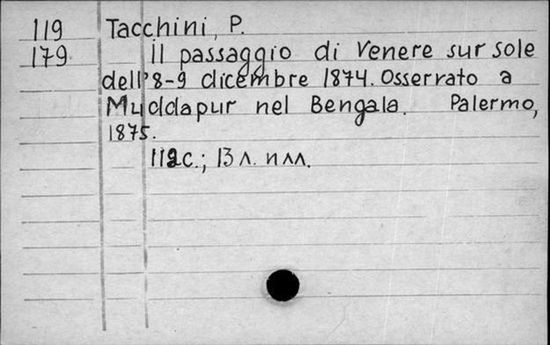 119 Tacchini, P.
179 il passaggio di Venere sur sole
dell'8-9 dicembre 1874. Osserrato a
Muddapur nel Bengala. Palermo,
1875.
112с.; 13 л. илл.